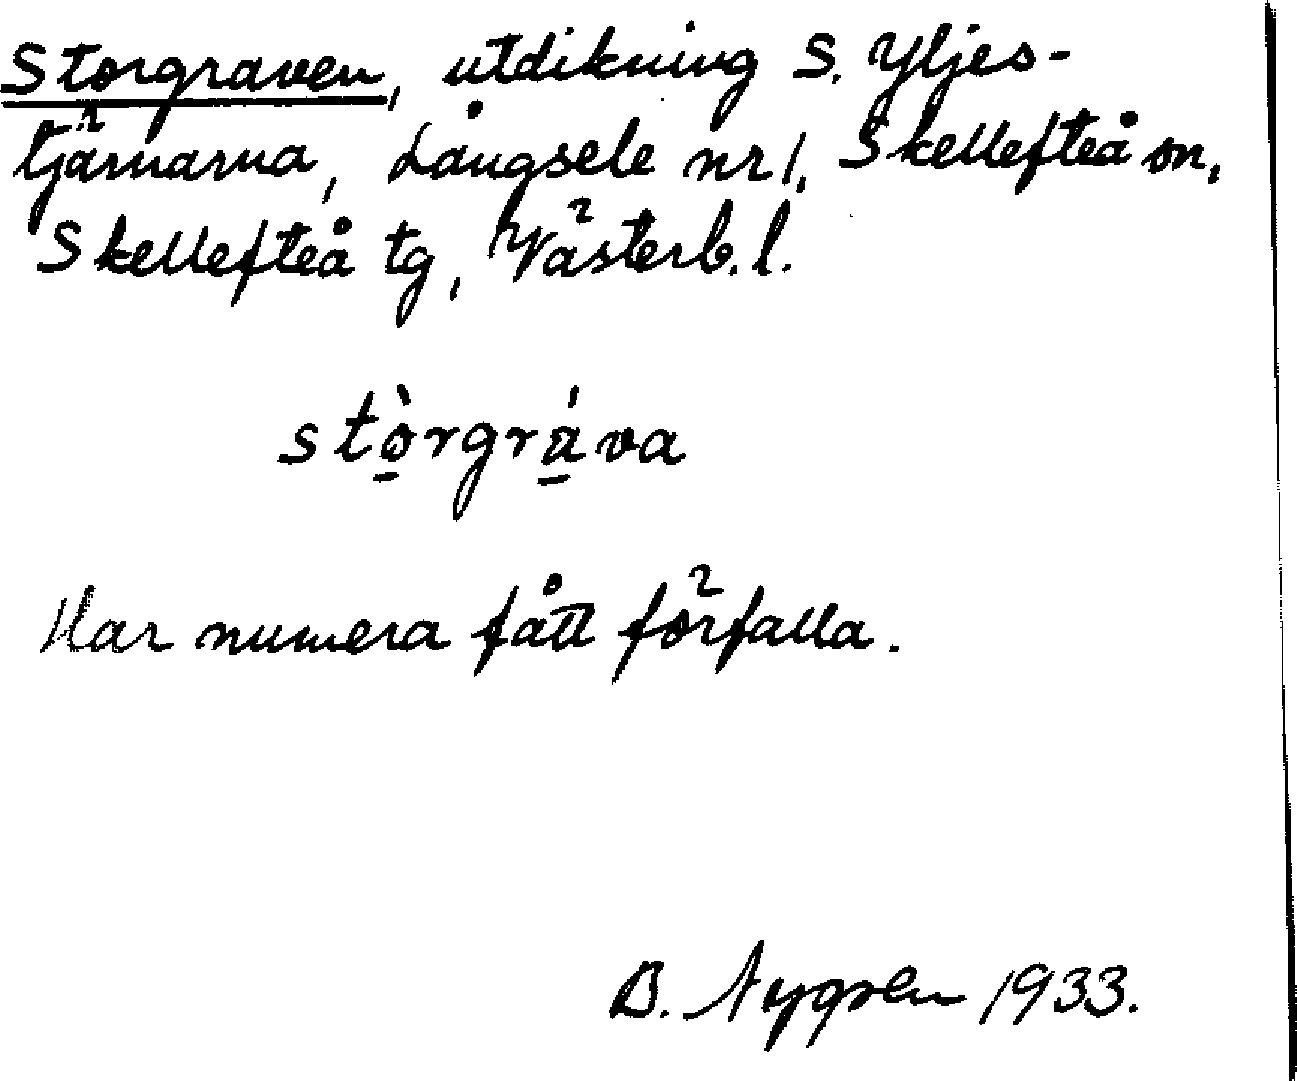 Storgraven, utdikning S. Yljes-
tjärnarna, Långsele nr 1, Skellefteå sn,
Skellefteå tg, Västerb. l.
stò̠rgrá̠va
Har numera fått förfalla.
B. Nygren 1933.